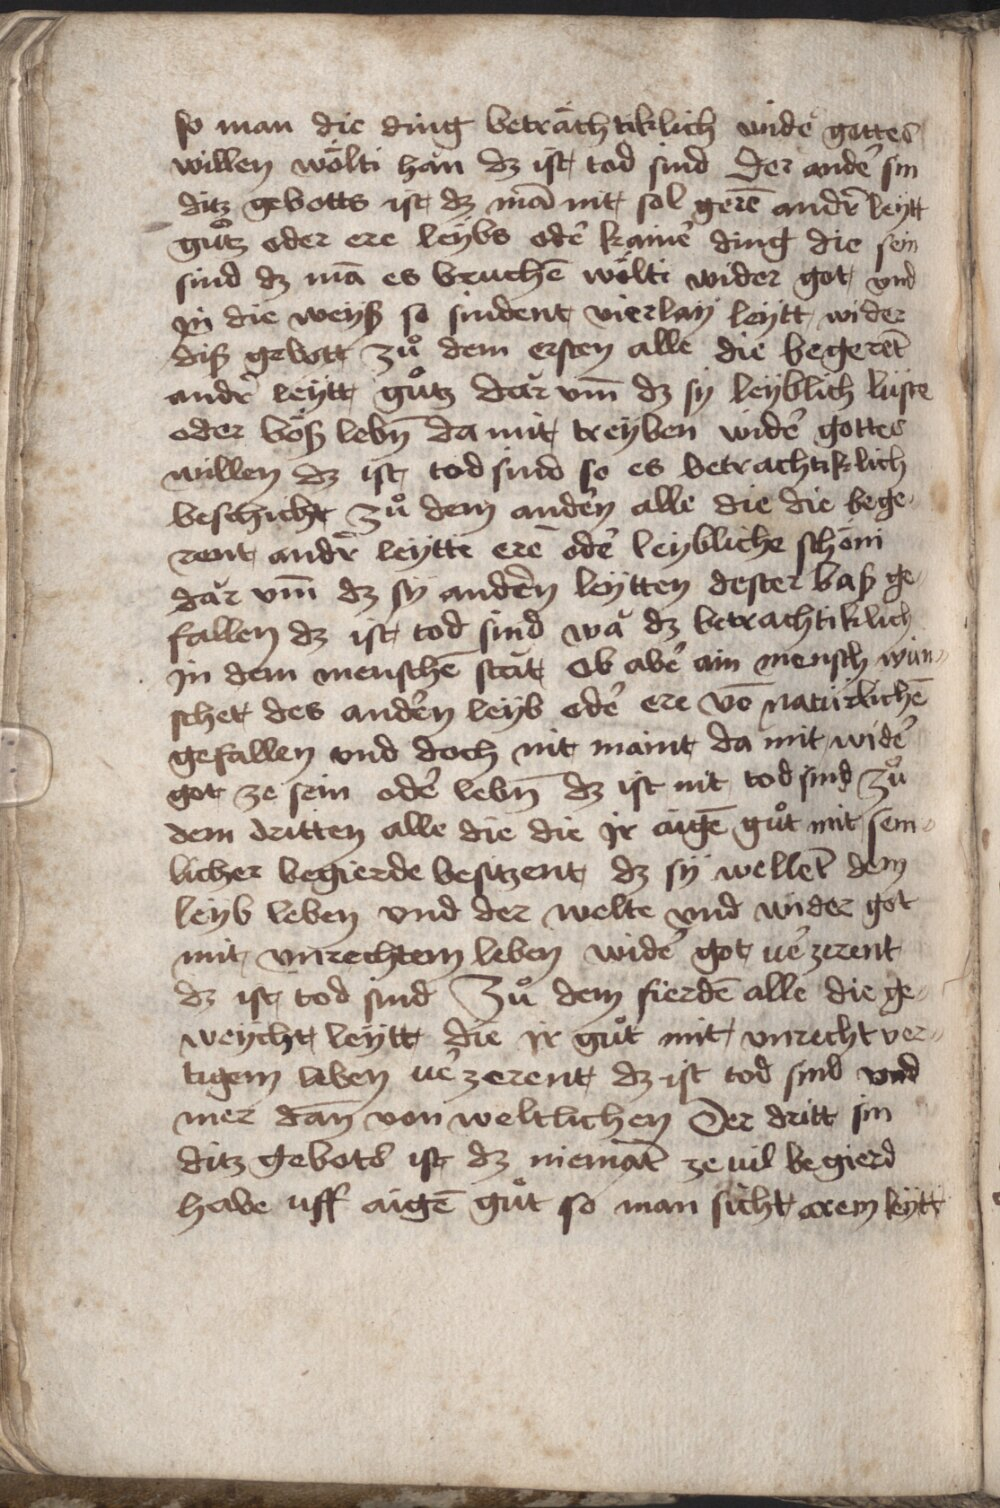 so man die ding beträchtiklich wide᷒ gottes
willen wölti han dz ist tod sind Der ande᷒ sin
ditz gebotts ist dz mā nit sol gerē andr᷒ leÿtt
guͦtz oder ere leÿbs ode᷒ kaine᷒ ding die sein
sind dz mā es bruchē wölti wider got vnd
in die weÿß so sindent vierlaÿ leÿtt wider
diß gebott zuͦ dem ersten alle die begerēt
andr᷒ leÿtt guͦtz dar vm̄ dz sÿ leÿblich lüste
oder böß lebn̄ da mit treÿben wide᷒ gottes
willen dz ist tod sind so es betrachtiklich
beschicht zuͦ demande᷒n alle die die bege-
rent andr᷒ leÿtte ere ode᷒ leÿbliche schöni
dar vm̄ dz sÿande᷒n leÿtten dester baß ge-
fallen dz ist tod sind wa dz betrachtiklich
in dem menschē stāt Ob abe᷒ ain mensch wün-
schet desande᷒n leÿb ode᷒ ere vō natürlichē
gefallen vnd doch nit maint da mit wide᷒
got ze sein ode᷒ lebn̄ dz ist nit tod sind zuͦ
dem dritten alle die die ir aigē guͦt mit sem-
licher begierde besitzent dz sÿ wellēt dem
leÿb leben vnd der welte vnd wider got
mit vnrechtem leben wide᷒ got ve᷒zerent
dz ist tod sind Zuͦ dem fierdē alle die ge-
weÿcht leÿtt die ir guͦt mit vnrecht ver-
tigem leben ve᷒zerent dz ist tod sind vnd
mer dan̄ von weltlichen Der dritt sin
ditz gebots ist dz niemāt ze vil begierd
habe uff aigē guͦt so man sicht arem leÿtt